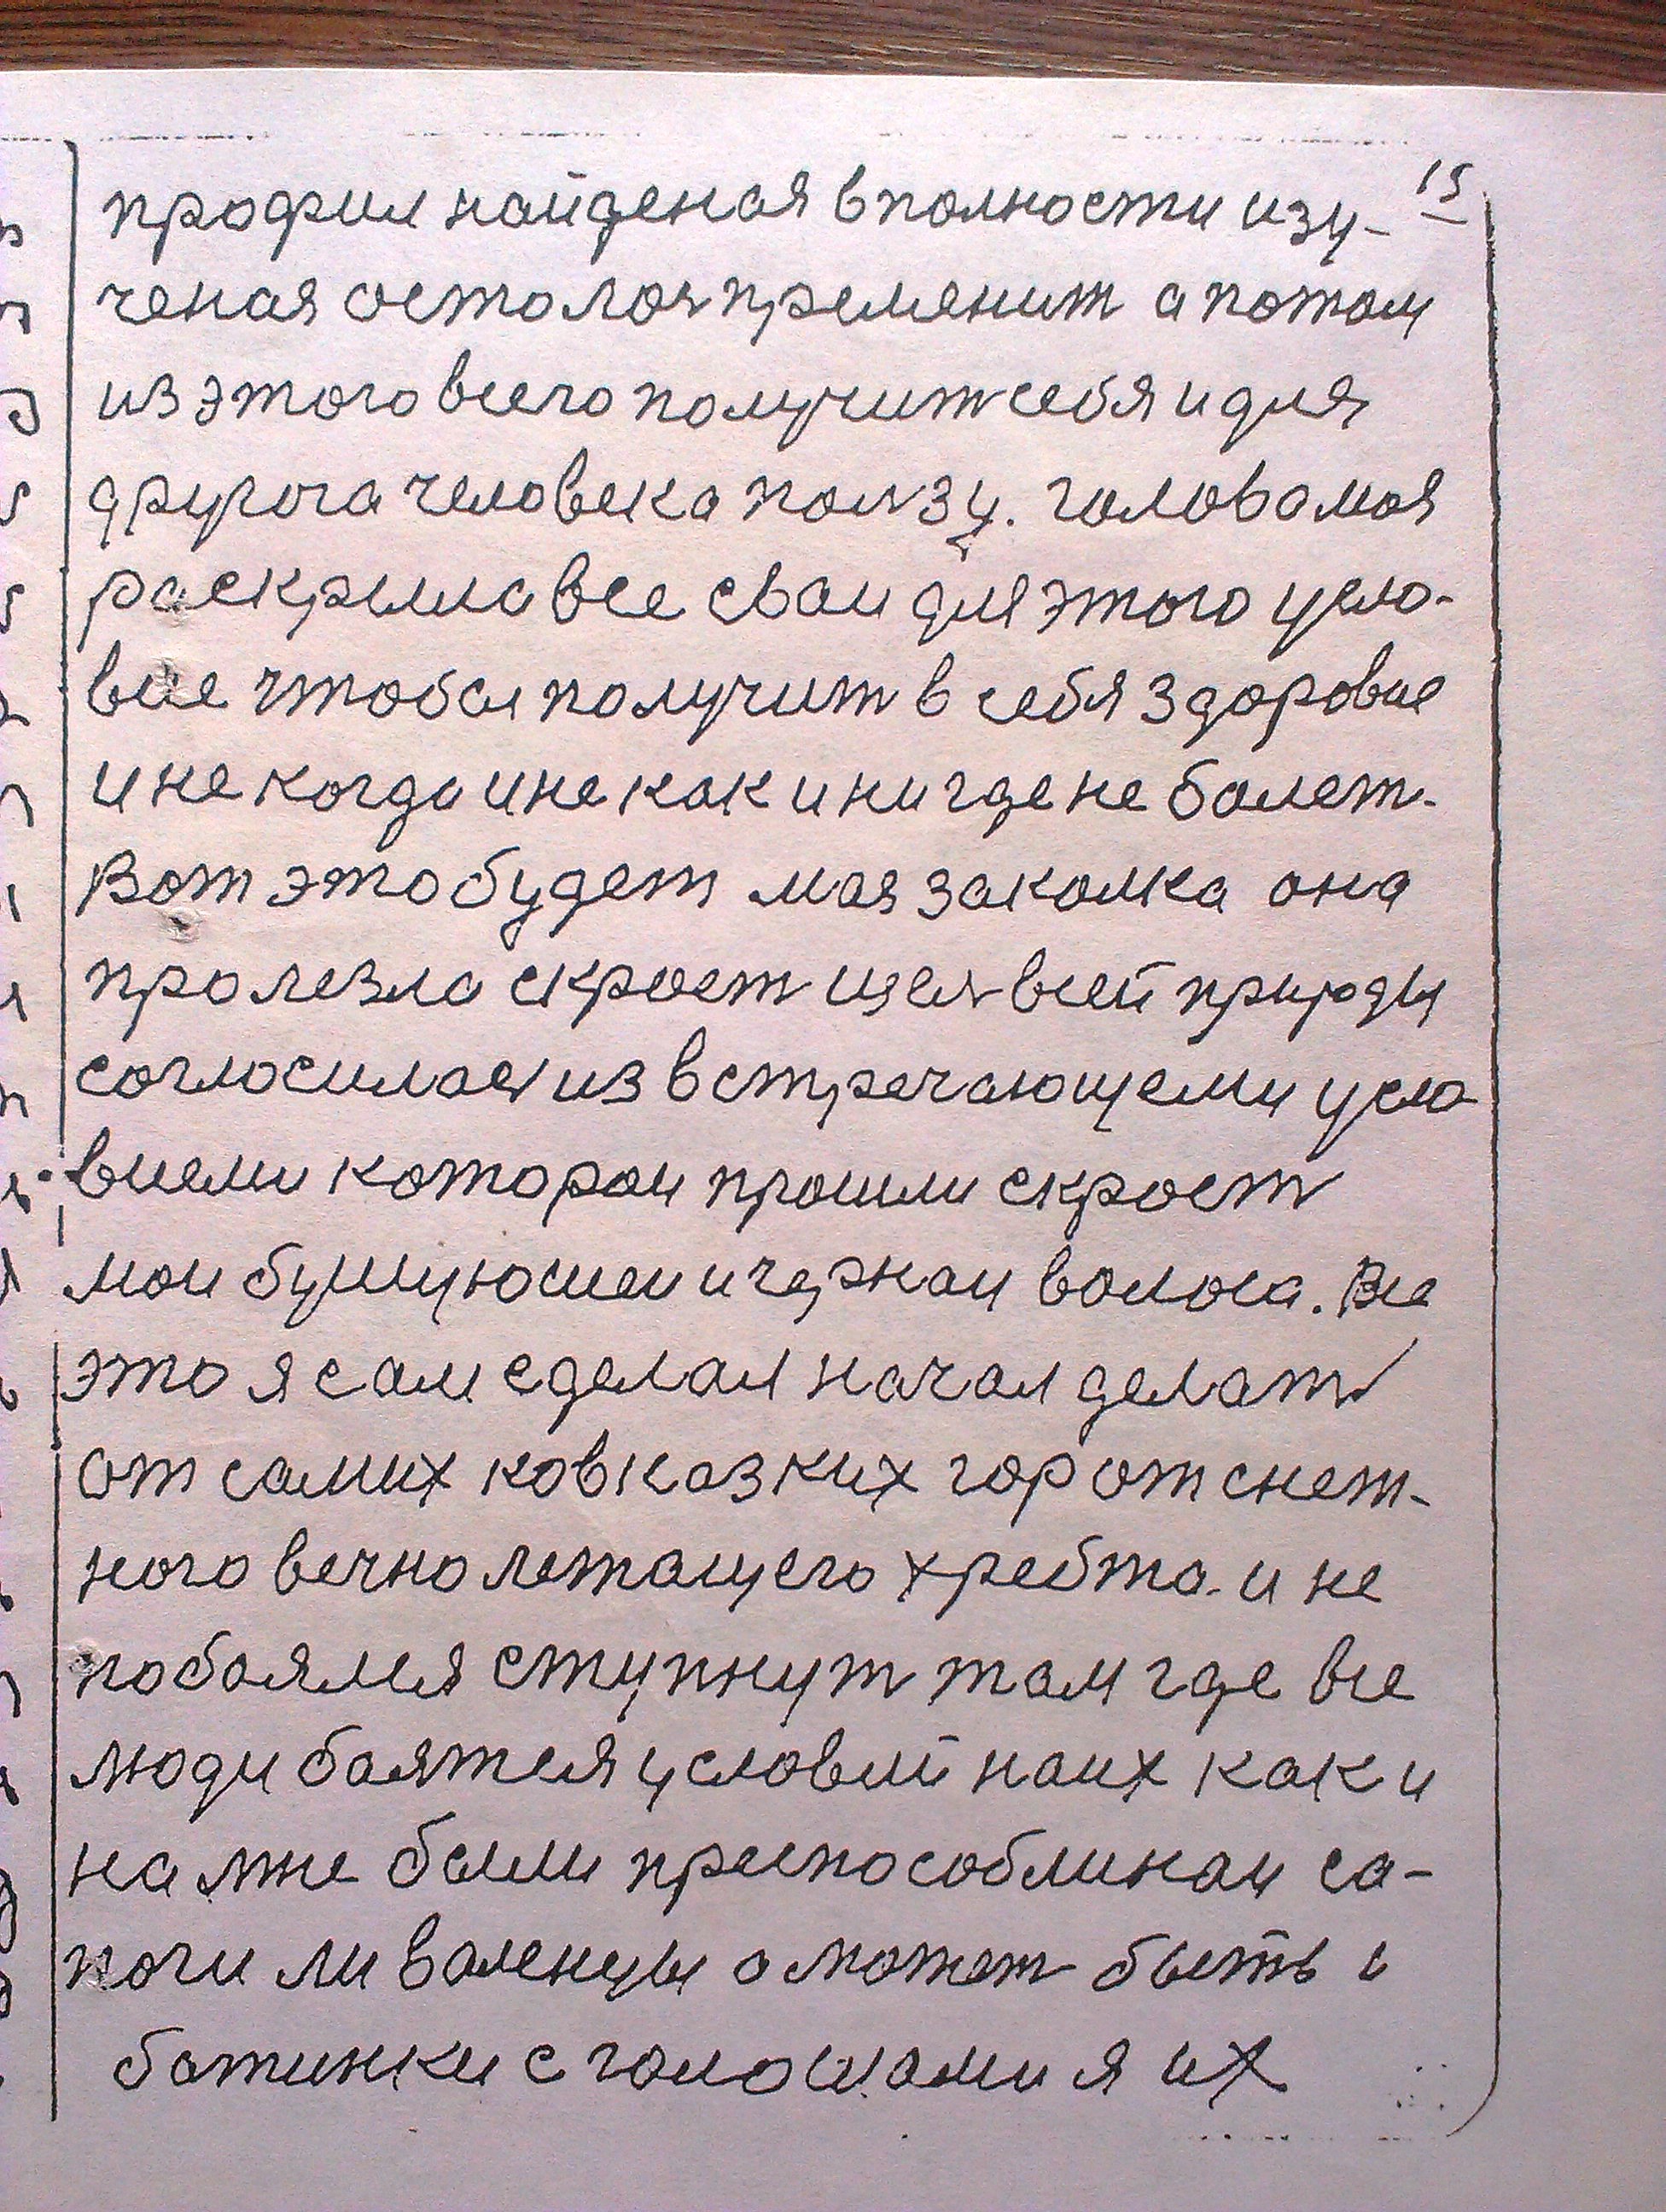 15
профил найденая вполности изу-
ченая осталоя пременит а потом
из этого всего получит себя и для
другога человека ползу. голова моя
раскрыла все сваи для этого усло-
вие чтобы получит в себя здоровие
и не когда и не как и ни где не болет.
Вот это будет моя заколка она
пролезла скрост щел всей природы
согласилася из встречающеми усло
виеми каторои прошли скрост
мои бушуюшеи и чернаи волоса. Все
это я сам сделал начал делат
от самих ковказких гор от снет-
ного вечно летащего хребта. и не
побоялся ступнут там где все
люди боятся условий на их как и
на мне были преспособлинаи са-
поги ли валенцы а может быть и
ботинки с голошами я их